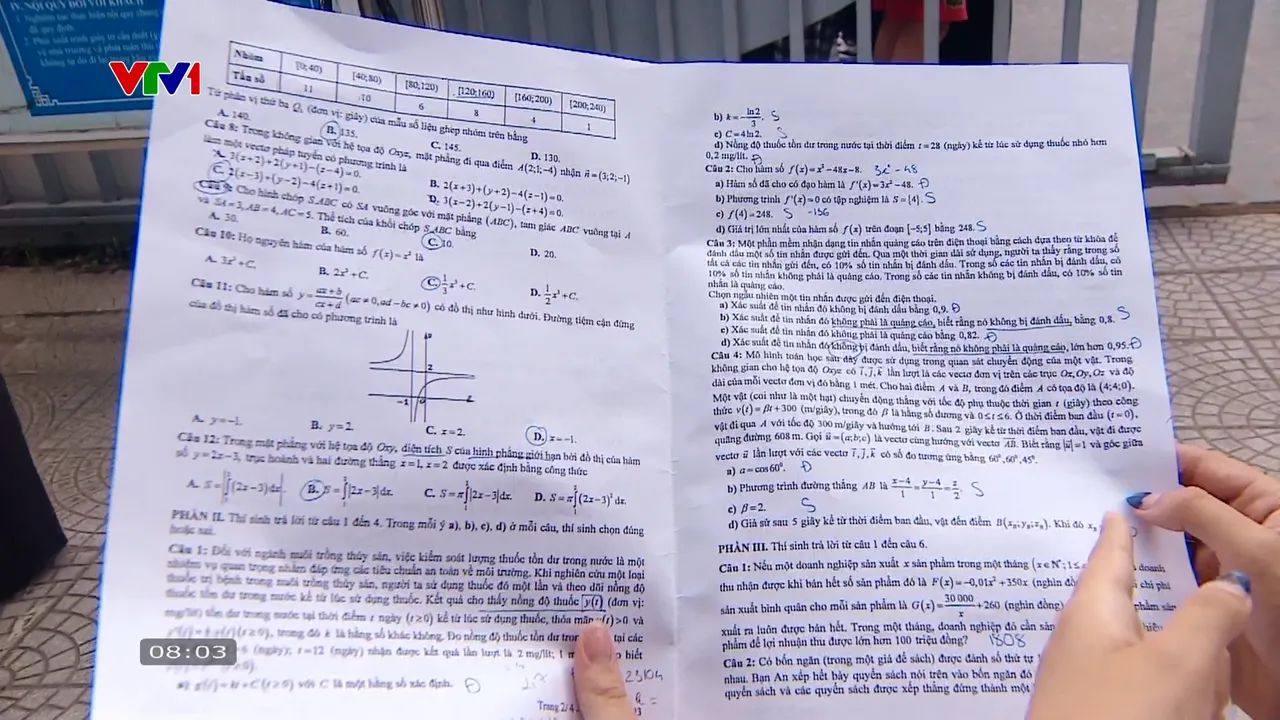 IV. NỘI QUY ĐỐI VỚI KHÁCH
VTV1
Nhóm [0;40) [40;80) [80;120) [120;160) [160;200) [200;240)
Tần số 11 10 6 8 4 1
Tứ phân vị thứ ba Q₃ (đơn vị: giây) của mẫu số liệu ghép nhóm trên bằng
A. 140. B. 135. C. 145. D. 130.
Câu 8: Trong không gian với hệ tọa độ Oxyz, mặt phẳng đi qua điểm A(2;1;−4) nhận n⃗=(3;2;−1)
làm một vectơ pháp tuyến có phương trình là
A. 3(x+2)+2(y+1)−(z−4)=0. B. 2(x+3)+(y+2)−4(z−1)=0.
C. 2(x−3)+(y−2)−4(z+1)=0. D. 3(x−2)+2(y−1)−(z+4)=0.
Câu 9: Cho hình chóp S.ABC có SA vuông góc với mặt phẳng (ABC), tam giác ABC vuông tại A
và SA=3, AB=4, AC=5. Thể tích của khối chóp S.ABC bằng
A. 30. B. 60. C. 10. D. 20.
Câu 10: Họ nguyên hàm của hàm số f(x)=x² là
A. 3x²+C. B. 2x³+C. C. 1/3 x³+C. D. 1/2 x³+C.
Câu 11: Cho hàm số y=(ax+b)/(cx+d) (ac≠0, ad−bc≠0) có đồ thị như hình dưới. Đường tiệm cận đứng
của đồ thị hàm số đã cho có phương trình là
2
−1 O
A. y=−1. B. y=2. C. x=2. D. x=−1.
Câu 12: Trong mặt phẳng với hệ tọa độ Oxy, diện tích S của hình phẳng giới hạn bởi đồ thị của hàm
số y=2x−3, trục hoành và hai đường thẳng x=1, x=2 được xác định bằng công thức
A. S=|∫₁²(2x−3)dx|. B. S=∫₁²|2x−3|dx. C. S=π∫₁²|2x−3|dx. D. S=π∫₁²(2x−3)²dx.
PHẦN II. Thí sinh trả lời từ câu 1 đến 4. Trong mỗi ý a), b), c), d) ở mỗi câu, thí sinh chọn đúng
hoặc sai.
Câu 1: Đối với ngành nuôi trồng thủy sản, việc kiểm soát lượng thuốc tồn dư trong nước là một
nhiệm vụ quan trọng nhằm đáp ứng các tiêu chuẩn an toàn về môi trường. Khi nghiên cứu một loại
thuốc trị bệnh trong nuôi trồng thủy sản, người ta sử dụng thuốc đó một lần và theo dõi nồng độ
thuốc tồn dư trong nước kể từ lúc sử dụng thuốc. Kết quả cho thấy nồng độ thuốc y(t) (đơn vị:
mg/lít) tồn dư trong nước tại thời điểm t ngày (t≥0) kể từ lúc sử dụng thuốc, thỏa mãn y(t)>0 và
(t≥0), trong đó k là hằng số khác không. Đo nồng độ thuốc tồn dư tại các
(ngày); t=12 (ngày) nhận được kết quả lần lượt là 2 mg/lít; 1 biết
= kt+C (t≥0) với C là một hằng số xác định. Đ
08:03
Trang 2/4
b) k=−ln2/3. S
c) C=4ln2. S
d) Nồng độ thuốc tồn dư trong nước tại thời điểm t=28 (ngày) kể từ lúc sử dụng thuốc nhỏ hơn
0,2 mg/lít. Đ
Câu 2: Cho hàm số f(x)=x³−48x−8. 3x²−48
a) Hàm số đã cho có đạo hàm là f'(x)=3x²−48. Đ
b) Phương trình f'(x)=0 có tập nghiệm là S={4}. S
c) f(4)=248. S −136
d) Giá trị lớn nhất của hàm số f(x) trên đoạn [−5;5] bằng 248. S
Câu 3: Một phần mềm nhận dạng tin nhắn quảng cáo trên điện thoại bằng cách dựa theo từ khóa để
đánh dấu một số tin nhắn được gửi đến. Qua một thời gian dài sử dụng, người ta thấy rằng trong số
tất cả các tin nhắn gửi đến, có 10% số tin nhắn bị đánh dấu. Trong số các tin nhắn bị đánh dấu, có
10% số tin nhắn không phải là quảng cáo. Trong số các tin nhắn không bị đánh dấu, có 10% số tin
nhắn là quảng cáo.
Chọn ngẫu nhiên một tin nhắn được gửi đến điện thoại.
a) Xác suất để tin nhắn đó không bị đánh dấu bằng 0,9. Đ
b) Xác suất để tin nhắn đó không phải là quảng cáo, biết rằng nó không bị đánh dấu, bằng 0,8. S
c) Xác suất để tin nhắn đó không phải là quảng cáo bằng 0,82. Đ
d) Xác suất để tin nhắn đó không bị đánh dấu, biết rằng nó không phải là quảng cáo, lớn hơn 0,95. Đ
Câu 4: Mô hình toán học sau đây được sử dụng trong quan sát chuyển động của một vật. Trong
không gian cho hệ tọa độ Oxyz có i⃗, j⃗, k⃗ lần lượt là các vectơ đơn vị trên các trục Ox, Oy, Oz và độ
dài của mỗi vectơ đơn vị đó bằng 1 mét. Cho hai điểm A và B, trong đó điểm A có tọa độ là (4;4;0).
Một vật (coi như là một hạt) chuyển động thẳng với tốc độ phụ thuộc thời gian t (giây) theo công
thức v(t)=βt+300 (m/giây), trong đó β là hằng số dương và 0≤t≤6. Ở thời điểm ban đầu (t=0),
vật đi qua A với tốc độ 300 m/giây và hướng tới B. Sau 2 giây kể từ thời điểm ban đầu, vật đi được
quãng đường 608 m. Gọi u⃗=(a;b;c) là vectơ cùng hướng với vectơ AB. Biết rằng |u⃗|=1 và góc giữa
vectơ u⃗ lần lượt với các vectơ i⃗, j⃗, k⃗ có số đo tương ứng bằng 60°, 60°, 45°.
a) a=cos60°. Đ
b) Phương trình đường thẳng AB là (x−4)/1=(y−4)/1=z/2. S
c) β=2. S
d) Giả sử sau 5 giây kể từ thời điểm ban đầu, vật đến điểm B(x_B; y_B; z_B). Khi đó x_B
PHẦN III. Thí sinh trả lời từ câu 1 đến câu 6.
Câu 1: Nếu một doanh nghiệp sản xuất x sản phẩm trong một tháng (x∈ℕ*; 1≤ doanh
thu nhận được khi bán hết số sản phẩm đó là F(x)=−0,01x²+350x (nghìn chi phí
sản xuất bình quân cho mỗi sản phẩm là G(x)=30 000/x+260 (nghìn đồng) phẩm sản
xuất ra luôn được bán hết. Trong một tháng, doanh nghiệp đó cần sản
phẩm để lợi nhuận thu được lớn hơn 100 triệu đồng? 1808
Câu 2: Có bốn ngăn (trong một giá để sách) được đánh số thứ tự
nhau. Bạn An xếp hết bảy quyển sách nói trên vào bốn ngăn đó
quyển sách và các quyển sách được xếp thẳng đứng thành một